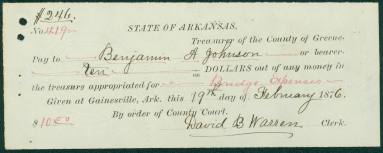 #246.
STATE OF ARKANSAS.
No. 419
Treasurer of the County of Greene.
Pay to Benjamin A. Johnson or bearer
Ten DOLLARS out of any money in
the treasury appropriated for Bridge Expenses
Given at Gainesville, Ark. this 19th day of February 1876.
By order of County Court,
$10.00 David B. Warren Clerk.